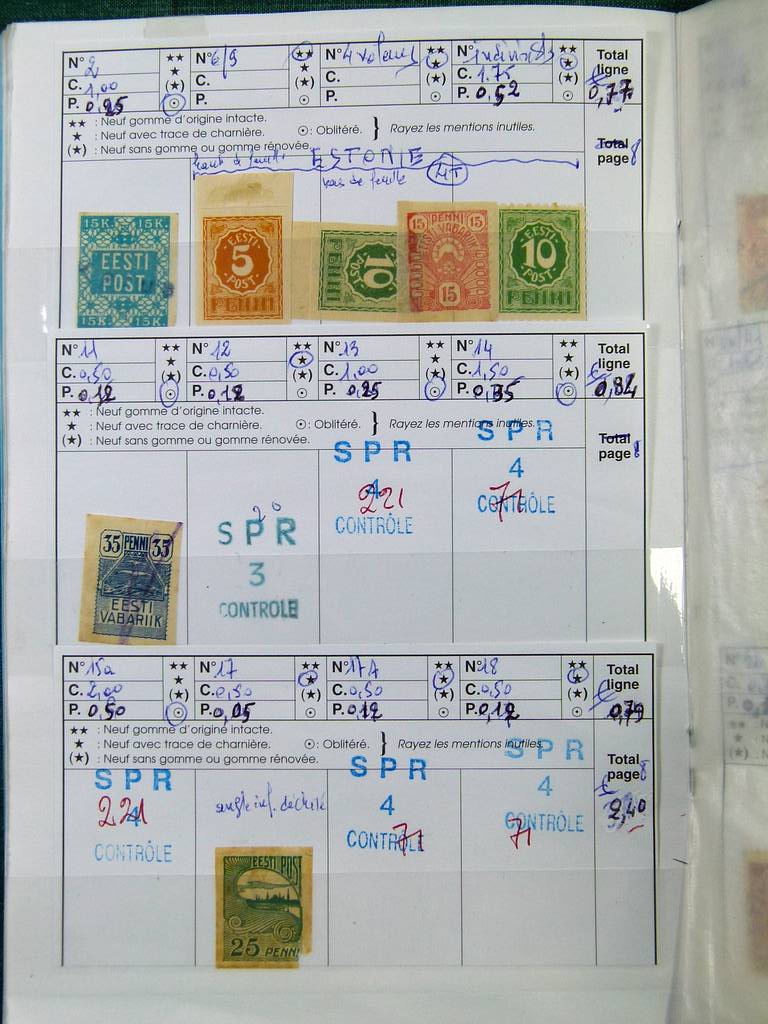 N° 2 ★★ N° 6/9 ★★ N° 4 valeurs ★★ N° ★★ Total
C. 1,00 ★ C. ★ C. ★ C. 1.75 ★ ligne
P. 0,25 (★) P. (★) P. (★) P. 0,52 (★) 0,77
★★ : Neuf gomme d'origine intacte.
★ : Neuf avec trace de charnière. ⊙: Oblitéré. } Rayez les mentions inutiles.
(★) : Neuf sans gomme ou gomme rénovée.
Total
page
haut de feuille ESTONIE
bas de feuille
15K. 15K.
EESTI
POST
15K 15K
EESTI
5
POST
PENNI
EESTI
10
POST
PENNI
15 PENNI 15
VABARIIK
15
EESTI
10
POST
PENNI
N° 11 ★★ N° 12 ★★ N° 13 ★★ N° 14 ★★ Total
C. 0,50 ★ C. 0,50 ★ C. 1,00 ★ C. 1,50 ★ ligne
P. 0,12 (★) P. 0,12 (★) P. 0,25 (★) P. 0,35 (★) € 0,84
★★ : Neuf gomme d'origine intacte.
★ : Neuf avec trace de charnière. ⊙: Oblitéré. } Rayez les mentions inutiles.
(★) : Neuf sans gomme ou gomme rénovée.
Total
page
35 PENNI 35
EESTI
VABARIIK
20
SPR
3
CONTROLE
SPR
4
221
CONTRÔLE
SPR
4
71
CONTRÔLE
N° 15a ★★ N° 17 ★★ N° 17A ★★ N° 18 ★★ Total
C. 2,00 ★ C. 0,50 ★ C. 0,50 ★ C. 0,50 ★ ligne
P. 0,50 (★) P. 0,05 (★) P. 0,12 (★) P. 0,12 (★) € 0,79
★★ : Neuf gomme d'origine intacte.
★ : Neuf avec trace de charnière. ⊙: Oblitéré. } Rayez les mentions inutiles.
(★) : Neuf sans gomme ou gomme rénovée.
Total
page
€ 2,40
SPR
4
221
CONTRÔLE
angle inf. déchiré
EESTI POST
25 PENNI
SPR
4
CONTRÔLE
71
SPR
4
CONTRÔLE
71